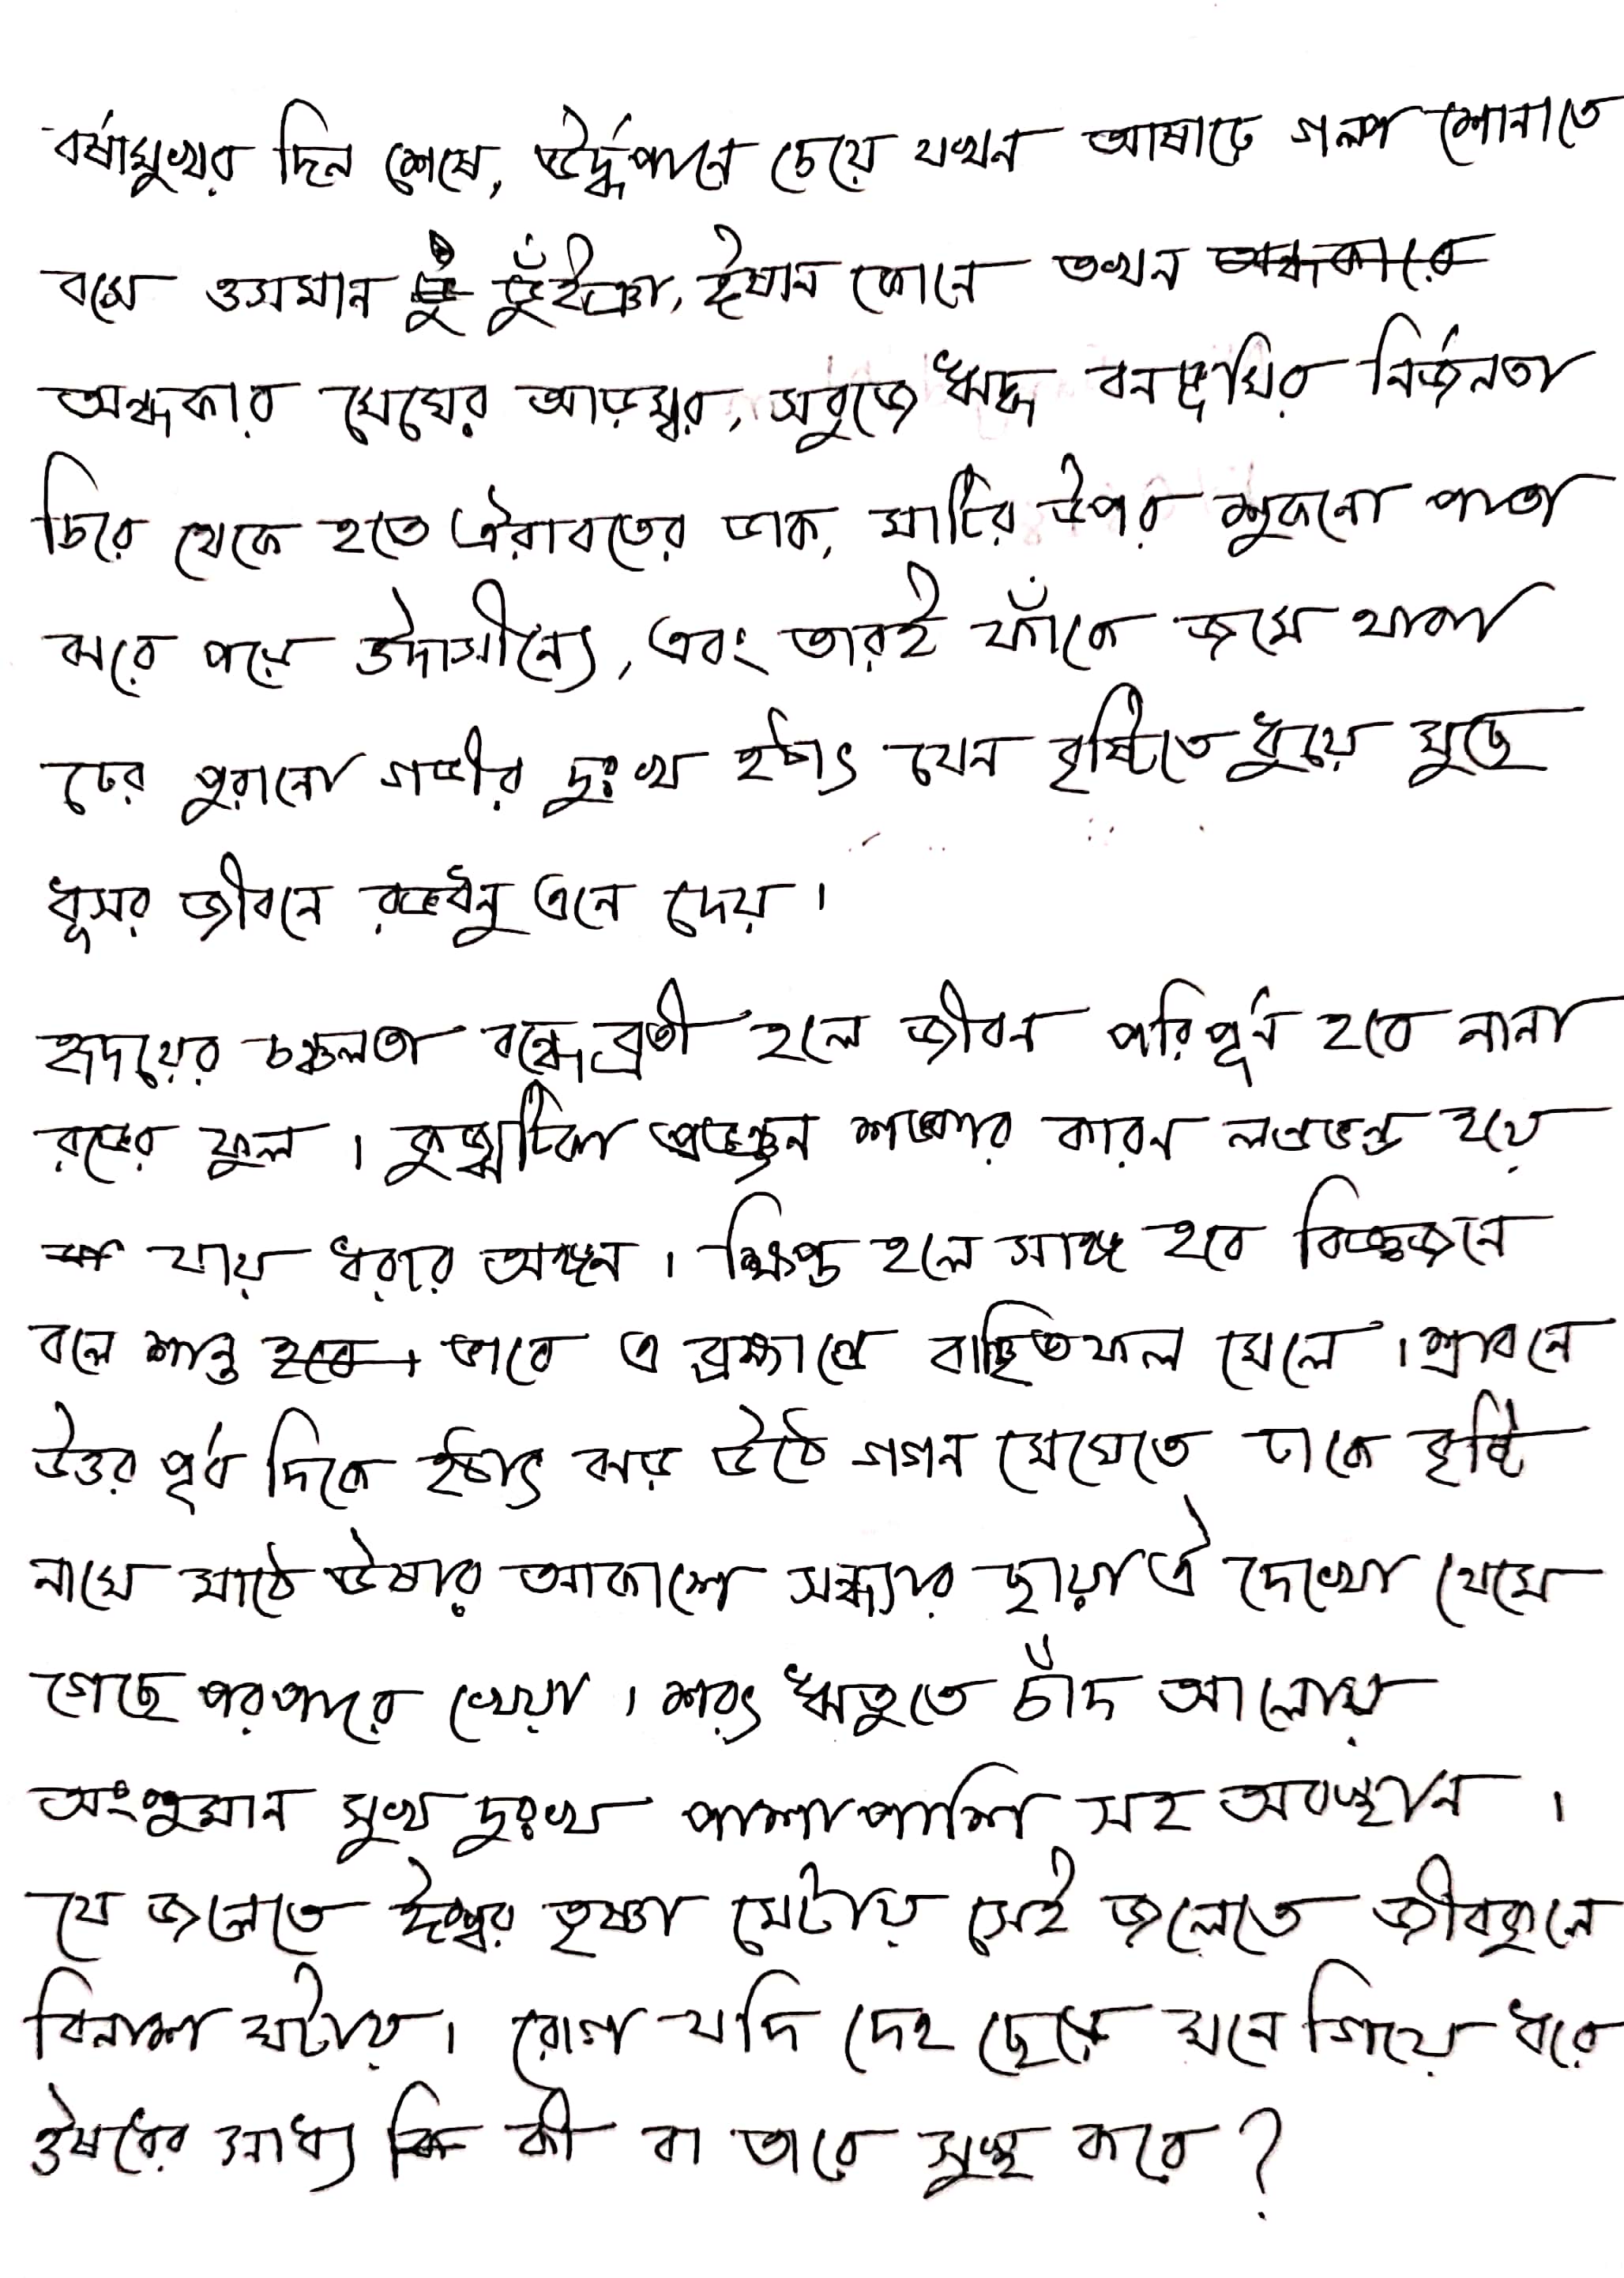 বর্ষামুখর দিন শেষে, ঊর্দ্ধপানে চেয়ে যখন আষাঢ়ে গল্প শোনাতে
বসে ওসমান ভুঁইঞা, ঈষান কোনে তখন অন্ধকারে
অন্ধকার মেঘের আড়ম্বর, সবুজে ঋদ্ধ বনভূমির নির্জনতা
চিরে থেকে হতে ঐরাবতের ডাক, মাটির উপর শুকনো পাতা
ঝরে পড়ে উদাসীন্যে, এবং তারই ফাঁকে জমে থাকা
ঢের পুরানো গভীর দুঃখ হঠাৎ যেন বৃষ্টিতে ধুয়ে মুছে
ধূসর জীবনে রঙধনু এনে দেয়।
হৃদয়ের চঞ্চলতা বন্ধে ব্রতী হলে জীবন পরিপূর্ন হবে নানা
রঙের ফুল। কুজ্ঝটিকা প্রভঞ্জন শঙ্কার কারন লণ্ডভণ্ড হয়ে
যায় ধরার অঙ্গন। ক্ষিপ্ত হলে সাঙ্গ হবে বিজ্ঞজনে
বলে শান্ত হবে। ভাবে এ ব্রহ্মাণ্ডে বাঞ্ছিতফল মেলে। শ্রাবনে
উত্তর পূর্ব দিকে হঠাৎ ঝড় উঠে গগন মেঘেতে ঢাকে বৃষ্টি
নামে মাঠে ঊষার আকাশে সন্ধ্যার ছায়া ঐ দেখো থেমে
গেছে পরপারে খেয়া। শরৎ ঋতুতে চাঁদ আলোয়
অংশুমান সুখ দুঃখ পাশাপাশি সহ অবস্থান।
যে জলেতে ঈশ্বর তৃষ্ণা মেটায় সেই জলেতে জীবকূলে
বিনাশ ঘটায়। রোগ যদি দেহ ছেড়ে মনে গিয়ে ধরে
ঔষধের সাধ্য কি কী বা তারে সুস্থ করে?